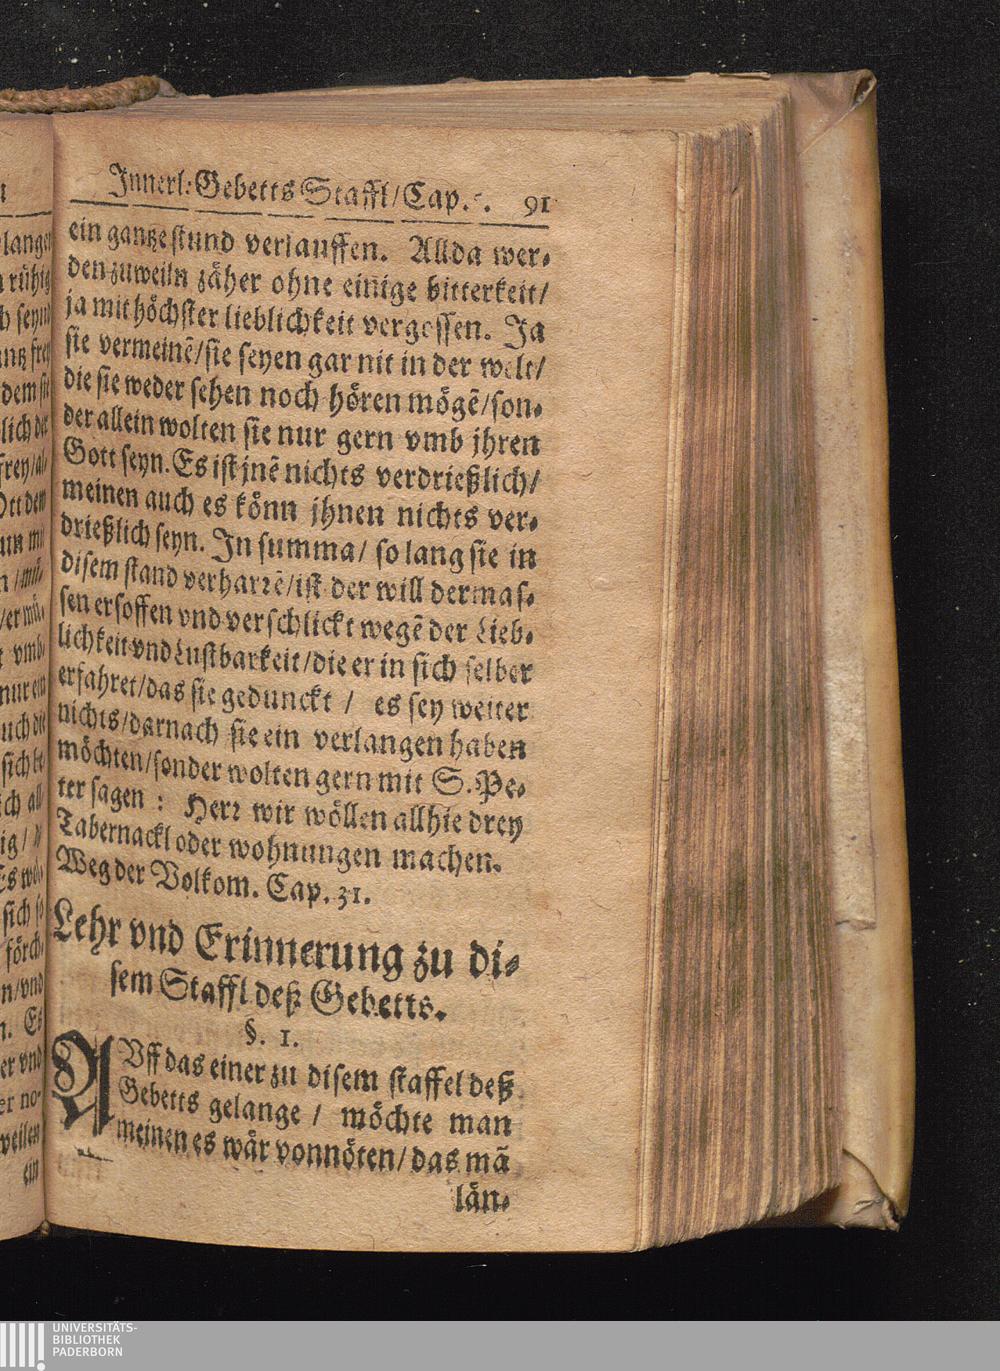 Innerl: Gebetts Staffl / Cap. 91
ein gantze stund verlauffen. Allda wer-
den zuweiln zäher ohne einige bitterkeit /
ja mit höchster lieblichkeit vergossen. Ja
sie vermeinē / sie seyen gar nit in der welt /
die sie weder sehen noch hören mögē / son-
der allein wolten sie nur gern vmb jhren
Gott seyn. Es ist jnē nichts verdrießlich /
meinen auch es könn jhnen nichts ver-
drießlich seyn. In summa / so lang sie in
disem stand verharrē / ist der will dermas-
sen ersoffen vnd verschlickt wegē der Lieb-
lichkeit vnd Lustbarkeit / die er in sich selber
erfahret / das sie gedunckt / es sey weiter
nichts / darnach sie ein verlangen haben
möchten / sonder wolten gern mit S. Pe-
ter sagen : Herr wir wöllen allhie drey
Tabernackl oder wohnungen machen.
Weg der Volkom. Cap. 31.
Lehr vnd Erinnerung zu di-
sem Staffl deß Gebetts.
§. 1.
AVff das einer zu disem staffel deß
Gebetts gelange / möchte man
meinen es wär vonnöten / das mā
län-
UNIVERSITÄTS-
BIBLIOTHEK
PADERBORN